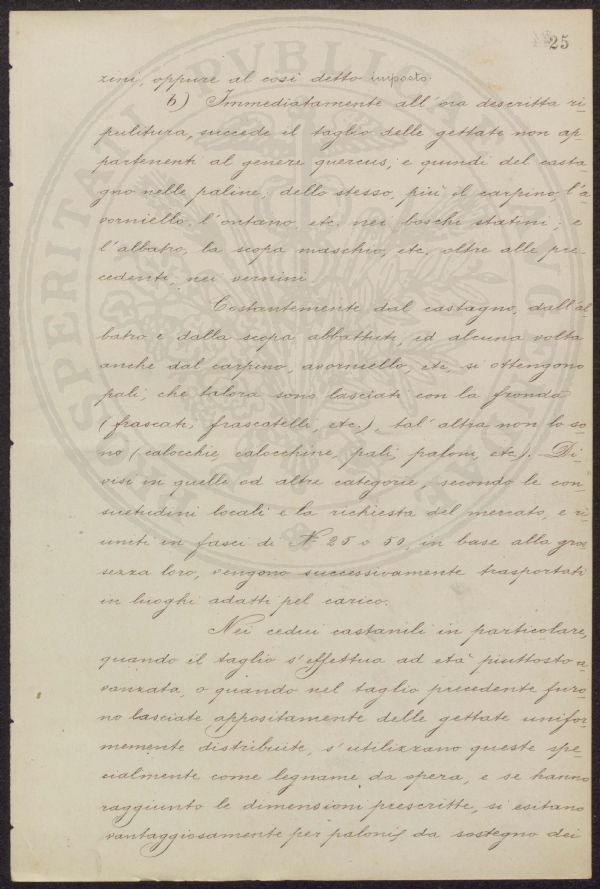 25
zini, oppure al così detto imposto.
b) Immediatamente all'ora descritta ri-
pulitura, succede il taglio delle gettate non ap-
partenenti al genere quercus; e quindi del casta-
gno nelle paline; dello stesso, più il carpino, l'a
vorniello, l'ontano, etc. nei boschi statini; e
l'albatro, la scopa maschio, etc. oltre alle pre-
cedenti, nei vernini.
Costantemente dal castagno, dall'al
batro e dalla scopa abbattuti, ed alcuna volta
anche dal carpino, avorniello, etc, si ottengono
pali, che talora sono lasciati con la fronda
(frascati, frascatelli, etc.), tal'altra non lo so-
no (calocchie, calocchine, pali, paloni, etc.). Di-
visi in quelle od altre categorie, secondo le con-
suetudini locali e la richiesta del mercato, e ri-
uniti in fasci di N° 25 o 50, in base alla gros
sezza loro, vengono successivamente trasportati
in luoghi adatti pel carico.
Nei cedui castanili in particolare,
quando il taglio s'effettua ad età piuttosto a-
vanzata, o quando nel taglio precedente furo-
no lasciate appositamente delle gettate unifor-
memente distribuite, s'utilizzano queste spe-
cialmente come legname da opera, e se hanno
raggiunto le dimensioni prescritte, si esitano
vantaggiosamente per paloni da sostegno dei
PROSPERITATI PVBLICAE AVGENDAE